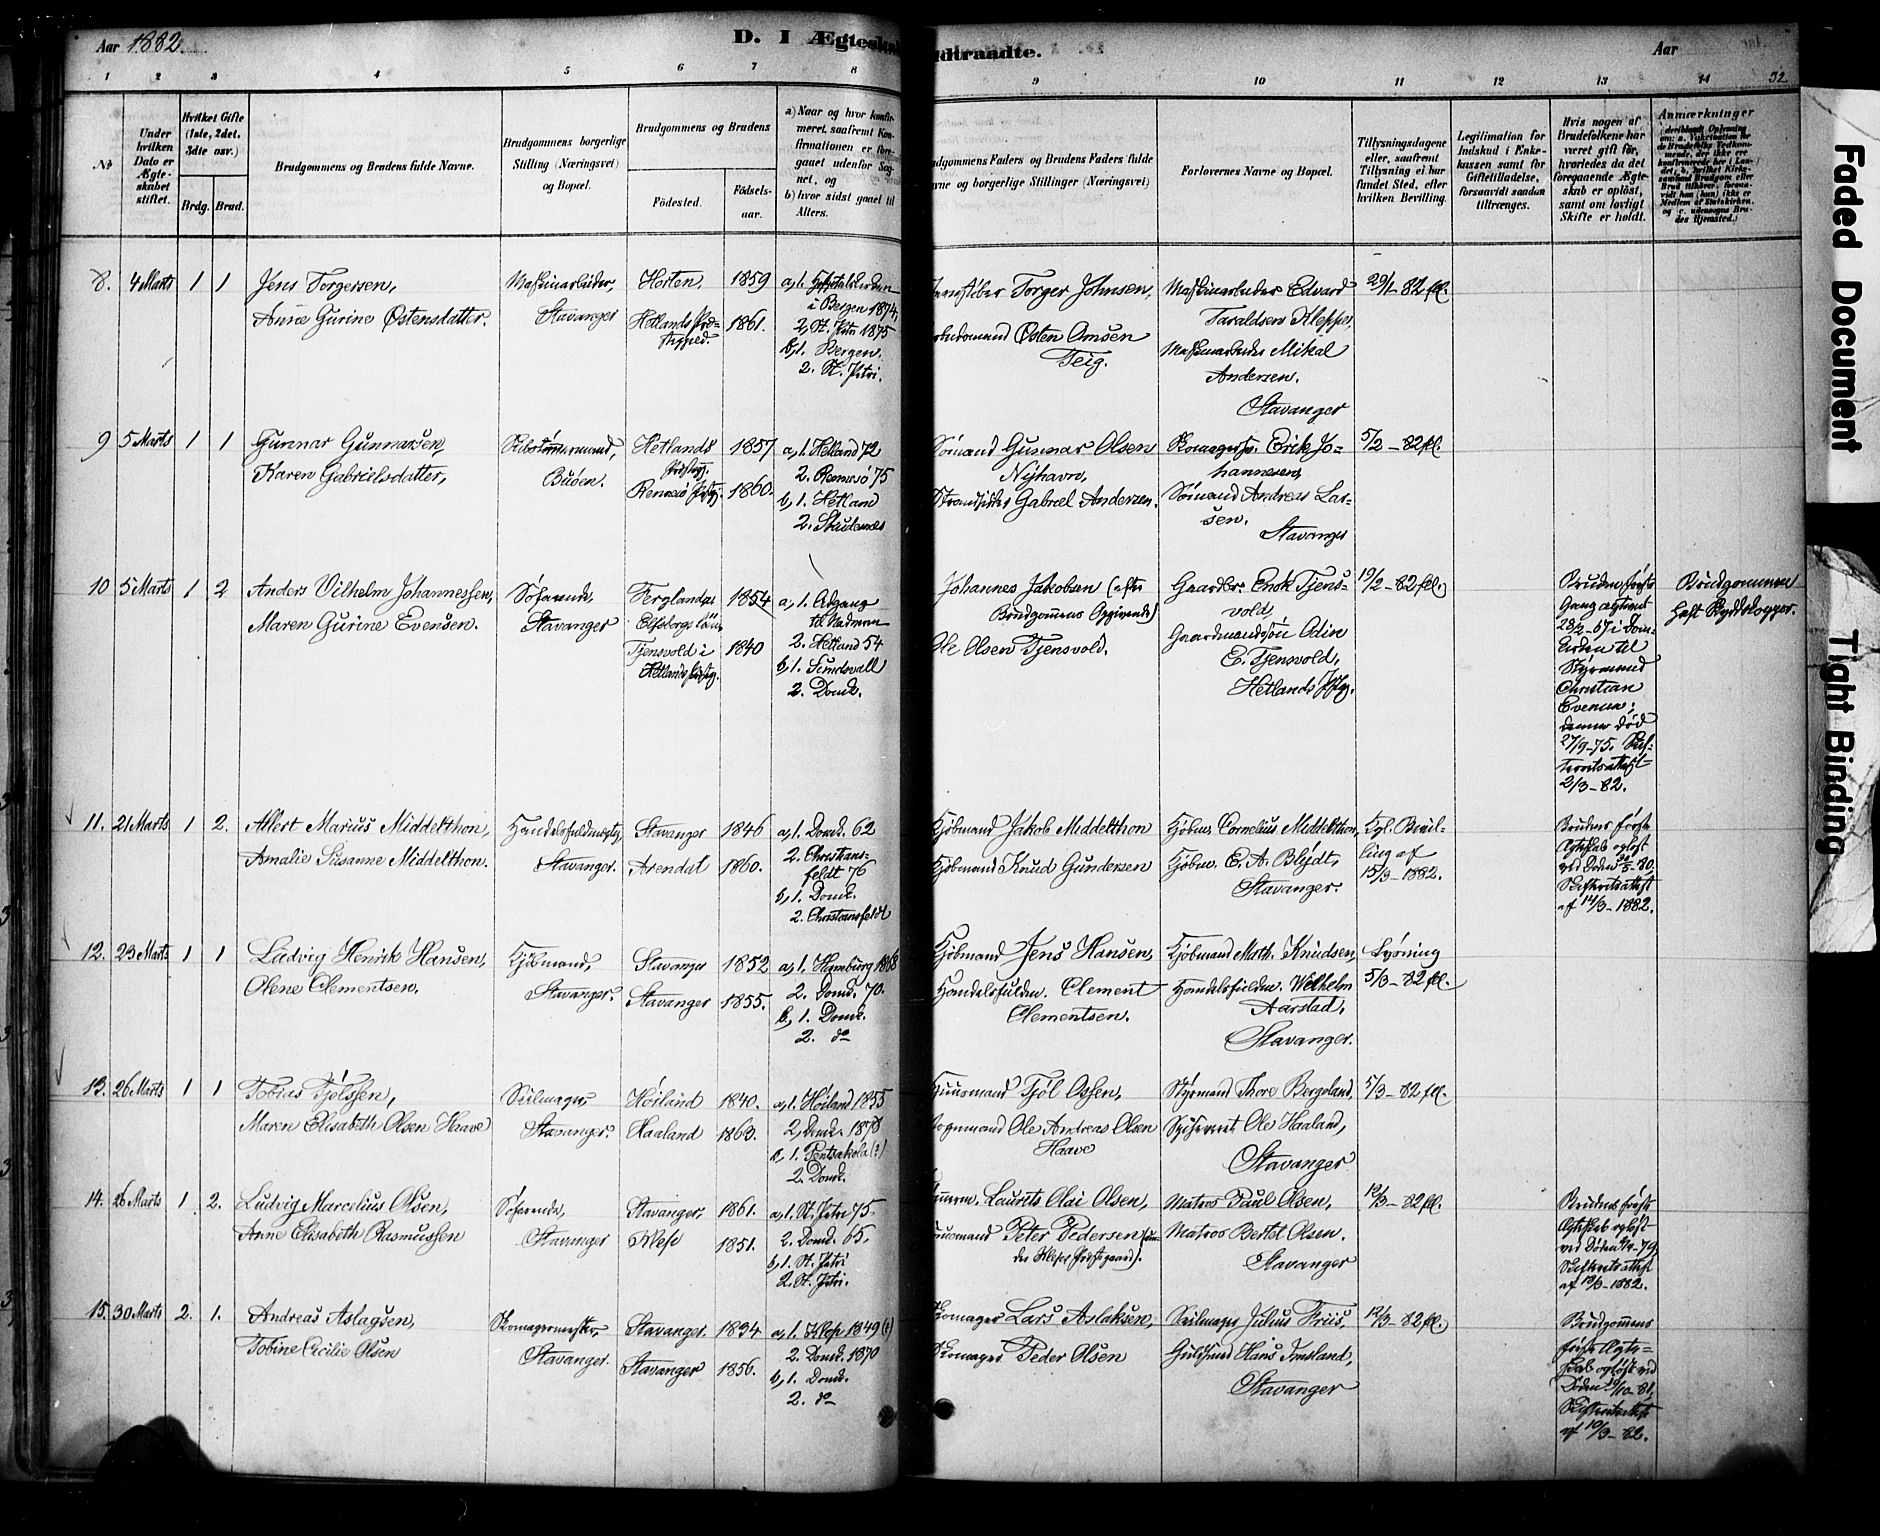 Aar 1882.
D. I Ægteska
dtraadte.
Aar
1 2 3 4 5 6 7 8 9 10 11 12 13 14
32
No
Under hvilken Dato er Ægteskabet stiftet.
Hvilket Gifte (1ste, 2det, 3dte osv.)
Brdg. Brud.
Brudgommens og Brudens fulde Navne.
Brudgommens borgerlige Stilling (Næringsvei) og Bopæl.
Brudgommens og Brudens
Fødested.
Fødselsaar.
a) Naar og hvor konfirmeret, saafremt Konfirmationen er foregaaet udenfor Sognet, og
b) hvor sidst gaaet til Alters.
udgommens Faders og Brudens Faders fulde
vne og borgerlige Stillinger (Næringsvei)
Forlovernes Navne og Bopæl.
Tillysningsdagene eller, saafremt Tillysning ei har fundet Sted, efter hvilken Bevilling.
Legitimation for Indskud i Enkekassen samt for Giftetilladelse, forsaavidt saadan tiltrænges.
Hvis nogen af Brudefolkene har været gift før, hvorledes da det foregaaende Ægteskab er opløst, samt om lovligt Skifte er holdt.
Anmærkninger
8. 4 Marts 1 1 Jens Torgersen, Maskinarbeider, Horten, 1859
Stavanger
Anne Gurine Østensdatter. Hetlands 1861.
i Bergen 1874,
2, St. Petri 1875
b, 1. Bergen.
2. St. Petri.
Torger Johnsen,
Østen Omsen
Teig.
Maskinarbeider Edvard
Taraldsen Kleppe,
Maskinarbeider Mikal
Andersen.
Stavanger
29/1-82 fl.
9 5 Marts 1 1 Gunnar Gunnarsen, Hetlands 1857
Karen Gabrielsdatter, Buøen. Rennesø 1860.
a, 1. Hetland 72
2. Rennesø 75
b, 1. Hetland
2. Skudenes
Sømand Gunnar Olsen
Nyhavn,
Strandsidder Gabriel Andersen.
Erik Jo-
hannesen,
Sømand Andreas Lar-
sen.
Stavanger
5/2-82 fl.
10 5 Marts 1 2 Anders Vilhelm Johannessen, Søfarende, 1854
Maren Gurine Evensen. Stavanger Elfsborgs län
Tjensvold i 1840
Hetlands
a, 1. Adgang
til Nadveren
2. Hetland 54
b, 1. Sundsvall
2. Domk.
Johannes Jakobsen (efter
Brudgommens Opgivende)
Ole Olsen Tjensvold,
Gaardbr. Enok Tjens-
vold,
Gaardmandssøn Odin
E. Tjensvold,
Hetlands
19/2-82 fl.
Bruden første
Gang ægteviet
28/2-67 i Dom-
kirken til
Styrmand
Christian
Evensen;
denne død
27/9-75.
2/3-82.
Brudgommen
11. 21 Marts 1 2. Allert Marius Middelthon, Handelsfuldmægtig, Stavanger 1846
Amalie Susanne Middelthon. Stavanger. Arendal 1860.
a, 1. Domk. 62
2. Christians-
feldt 76
b, 1. Domk.
2. Christiansfeldt
Kjøbmand Jakob Middelthon
Kjøbmand Knud Gundersen
Kjøbm. Cornelius Middelthon,
Kjøbm. E. A. Blydt,
Stavanger.
Kgl. Bevil-
ling af
15/3-1882.
Brudens første
Ægteskab opløst
ved Døden
Skifteretsattest
af 14/3-1882.
12. 23 Marts 1 1 Ludvig Henrik Hansen, Kjøbmand, Stavanger 1852
Olene Clementsen. Stavanger. Stavanger 1855.
a, 1. Hamburg 1868
2. Domk. 70.
b, 1. Domk.
2. do
Kjøbmand Jens Hansen,
Handelsfuldm. Clement
Clementsen.
Kjøbmand Math. Knudsen,
Handelsfuldm. Wilhelm
Aarstad,
Stavanger.
Lysning
5/3-82 fl.
13. 26 Marts 1 1 Tobias Tjølssen, Seilmager, Høiland 1840.
Maren Elisabeth Olsen Haave Stavanger. Haaland 1863.
a, 1. Høiland 1855
2, Domk. 1878
b, 1. Pentsakola (?)
2. Domk.
Huusmand Tjøl Ossen,
Vognmand Ole Andreas Olsen
Haave
Styrmand Thore Bergeland,
Ole Haaland,
Stavanger
5/3-82 fl.
14. 26 Marts 1 2. Ludvig Marcelius Olsen, Søfarende, Stavanger, 1861.
Anne Elisabeth Rasmussen Stavanger Klep 1851.
a, 1. St. Petri 75.
2. Domk. 65.
b, 1. St. Petri
2. St. Petri.
Laurits Olai Olsen,
Huusmand Peter Pedersen (un-
der Kleps Præstegaard).
Matros Paul Olsen,
Matros Bertel Olsen.
Stavanger
12/3-82 fl.
Brudens første
Ægteskab opløst
ved Døden
Skifteretsattest
af 13/3-1882.
15. 30 Marts 2. 1. Andreas Aslagsen, Skomagermester, Stavanger. 1834
Tobine Cecilie Olsen Stavanger. Stavanger 1856.
a, 1. Klep 1849 (?)
2. Domk. 1870
b, 1. Domk.
2. do
Skomager Lars Aslaksen,
Skomager Peder Olsen
Seilmager Julius Friis,
Guldsmed Hans Imsland,
Stavanger
12/3-82 fl.
Brudgommens
første Ægte-
skab opløst ved
Døden
Skifteretsattest
af 10/3-82.
Faded Document
Tight Binding